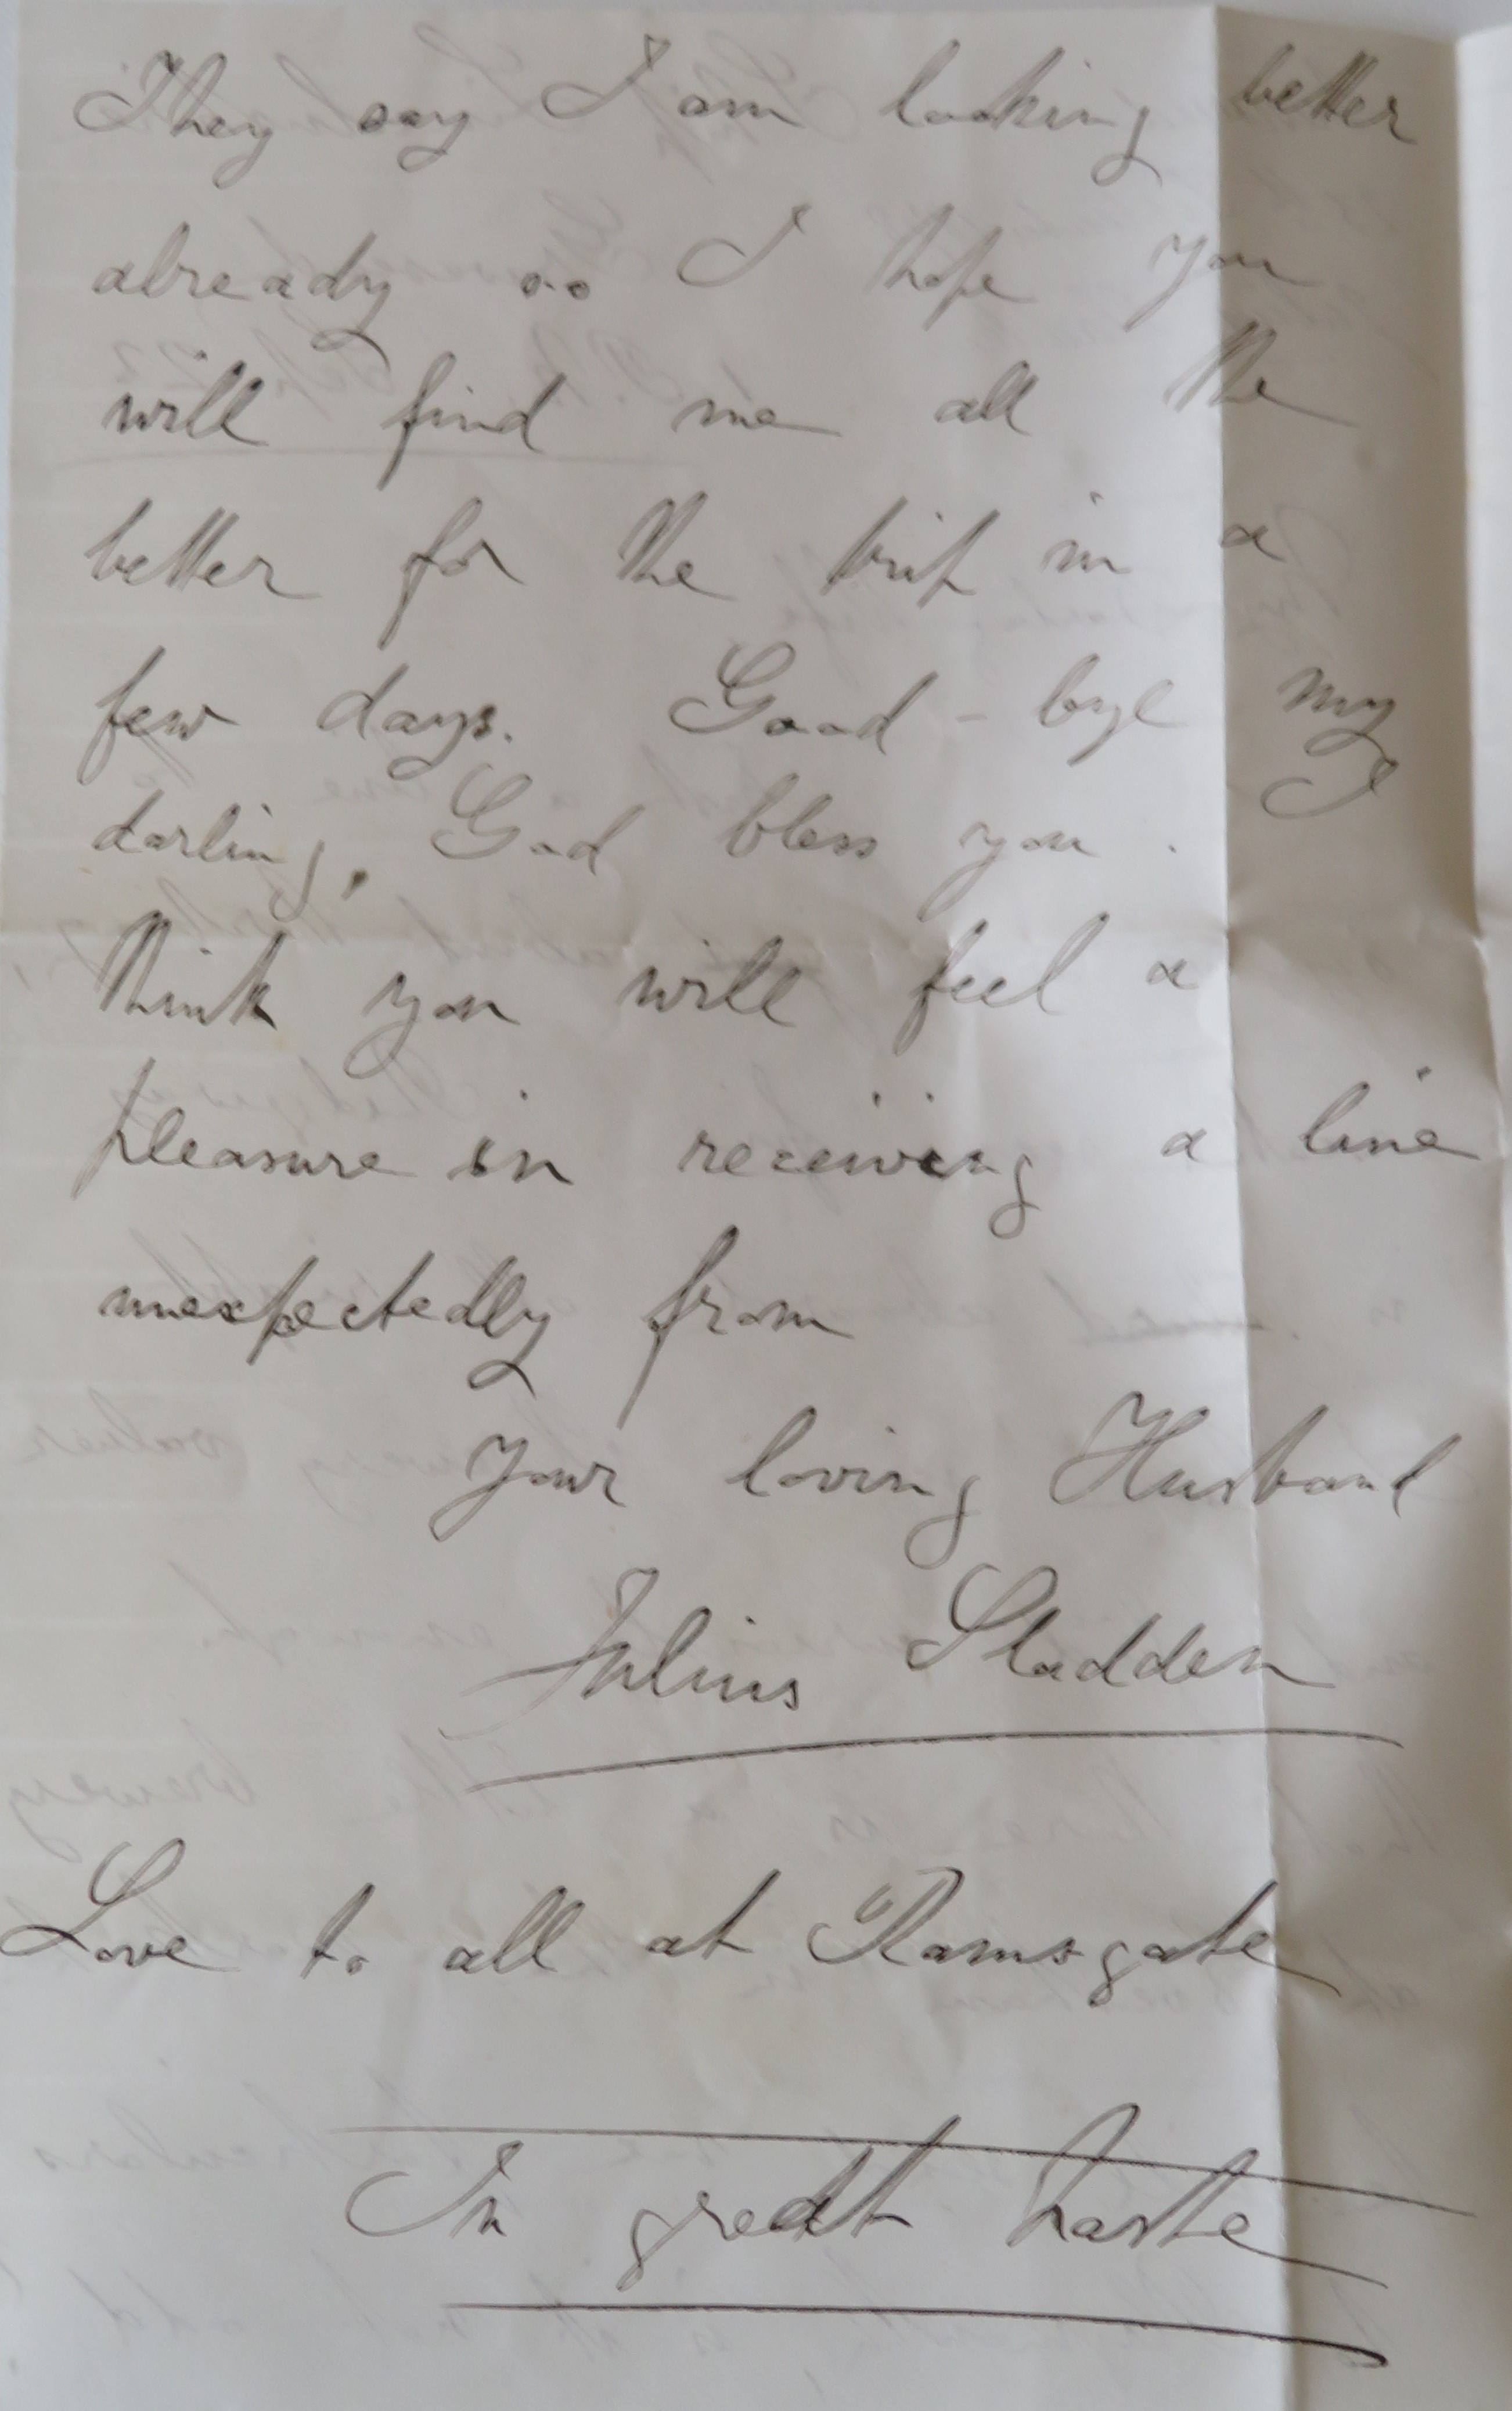 They say I am looking better
already so I hope you
will find me all the
better for the trip in a
few days. Good-bye my
darling, God bless you. I
think you will feel a
pleasure in receiving a line
unexpectedly from
your loving Husband
Julius Sladden
Love to all at Ramsgate
In great haste